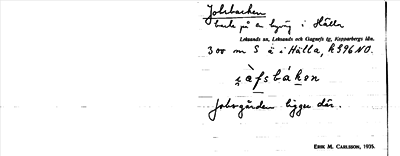 Jobsbacken
backe på en byväg i Hälla
Leksands sn, Leksands och Gagnefs tg, Kopparbergs län.
300 m S ä i Hälla, k 596 NO.
Jobsgården ligger där.
ERIK M. CARLSSON, 1935.